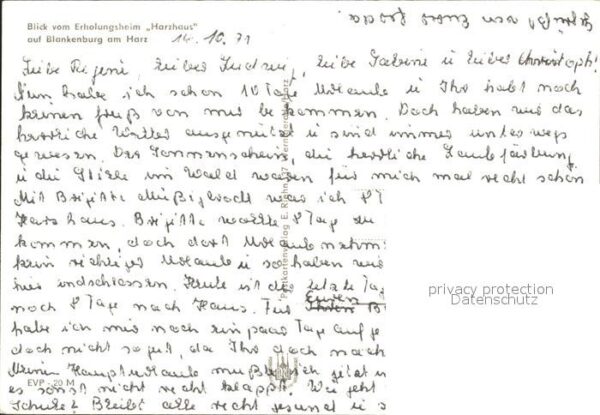 Blick vom Erholungsheim „Harzhaus"
auf Blankenburg am Harz
14. 10. 71
Liebe Regini, lieber Ludwig, liebe Sabine u. lieber Christoph!
Nun habe ich schon 10 Tage Urlaub u Ihr habt noch
keinen Gruß von mir bekommen. Doch haben wir das
herrliche Wetter ausgenutzt u sind immer unterwegs
gewesen. Der Sonnenschein, die herrliche Laubfärbung
u die Stille im Wald waren für mich mal recht schön
Mit Brigitte war ich 8 T
Harzhaus. Brigitte wollte 8 Tage zu
kommen, doch dort Urlaub nehm
kein richtiger Urlaub u so haben wir
hier Heute ist der letzte Tag
noch 8 Tage nach Haus. Für Euren B
habe ich mir noch ein paar Tage aufge
doch nicht so gut, da Ihr doch nach
Meinen Haupturlaub mußte ich jetzt n
es sonst nicht recht klappt. Wie geht
Schule? Bleibt alle recht gesund u s
gegrüßt von Eurer
Postkartenverlag E. Riehn, 37 Wernigerode/Harz
EVP -.20 M
privacy protection
Datenschutz